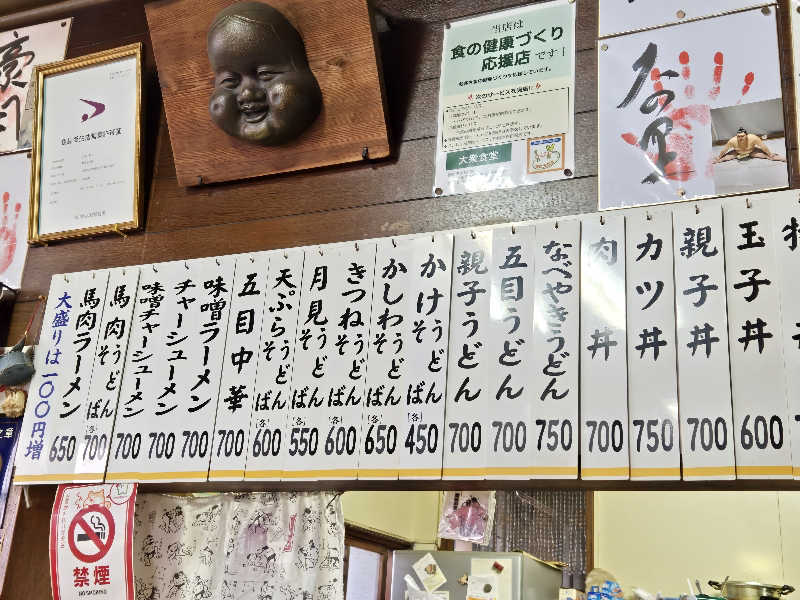 当店は
食の健康づくり
応援店です！
大衆食堂
玉子丼
600
親子丼
700
カツ丼
750
肉丼
700
なべやきうどん
750
五目うどん
700
親子うどん
700
かけうどんそば
(各)
450
かしわうどんそば
(各)
650
きつねうどんそば
(各)
600
月見うどんそば
(各)
550
天ぷらうどんそば
(各)
600
五目中華
700
味噌ラーメン
700
チャーシューメン
700
味噌チャーシューメン
700
馬肉うどんそば
700
馬肉ラーメン
650
大盛りは一〇〇円増
禁煙
NO SMOKING